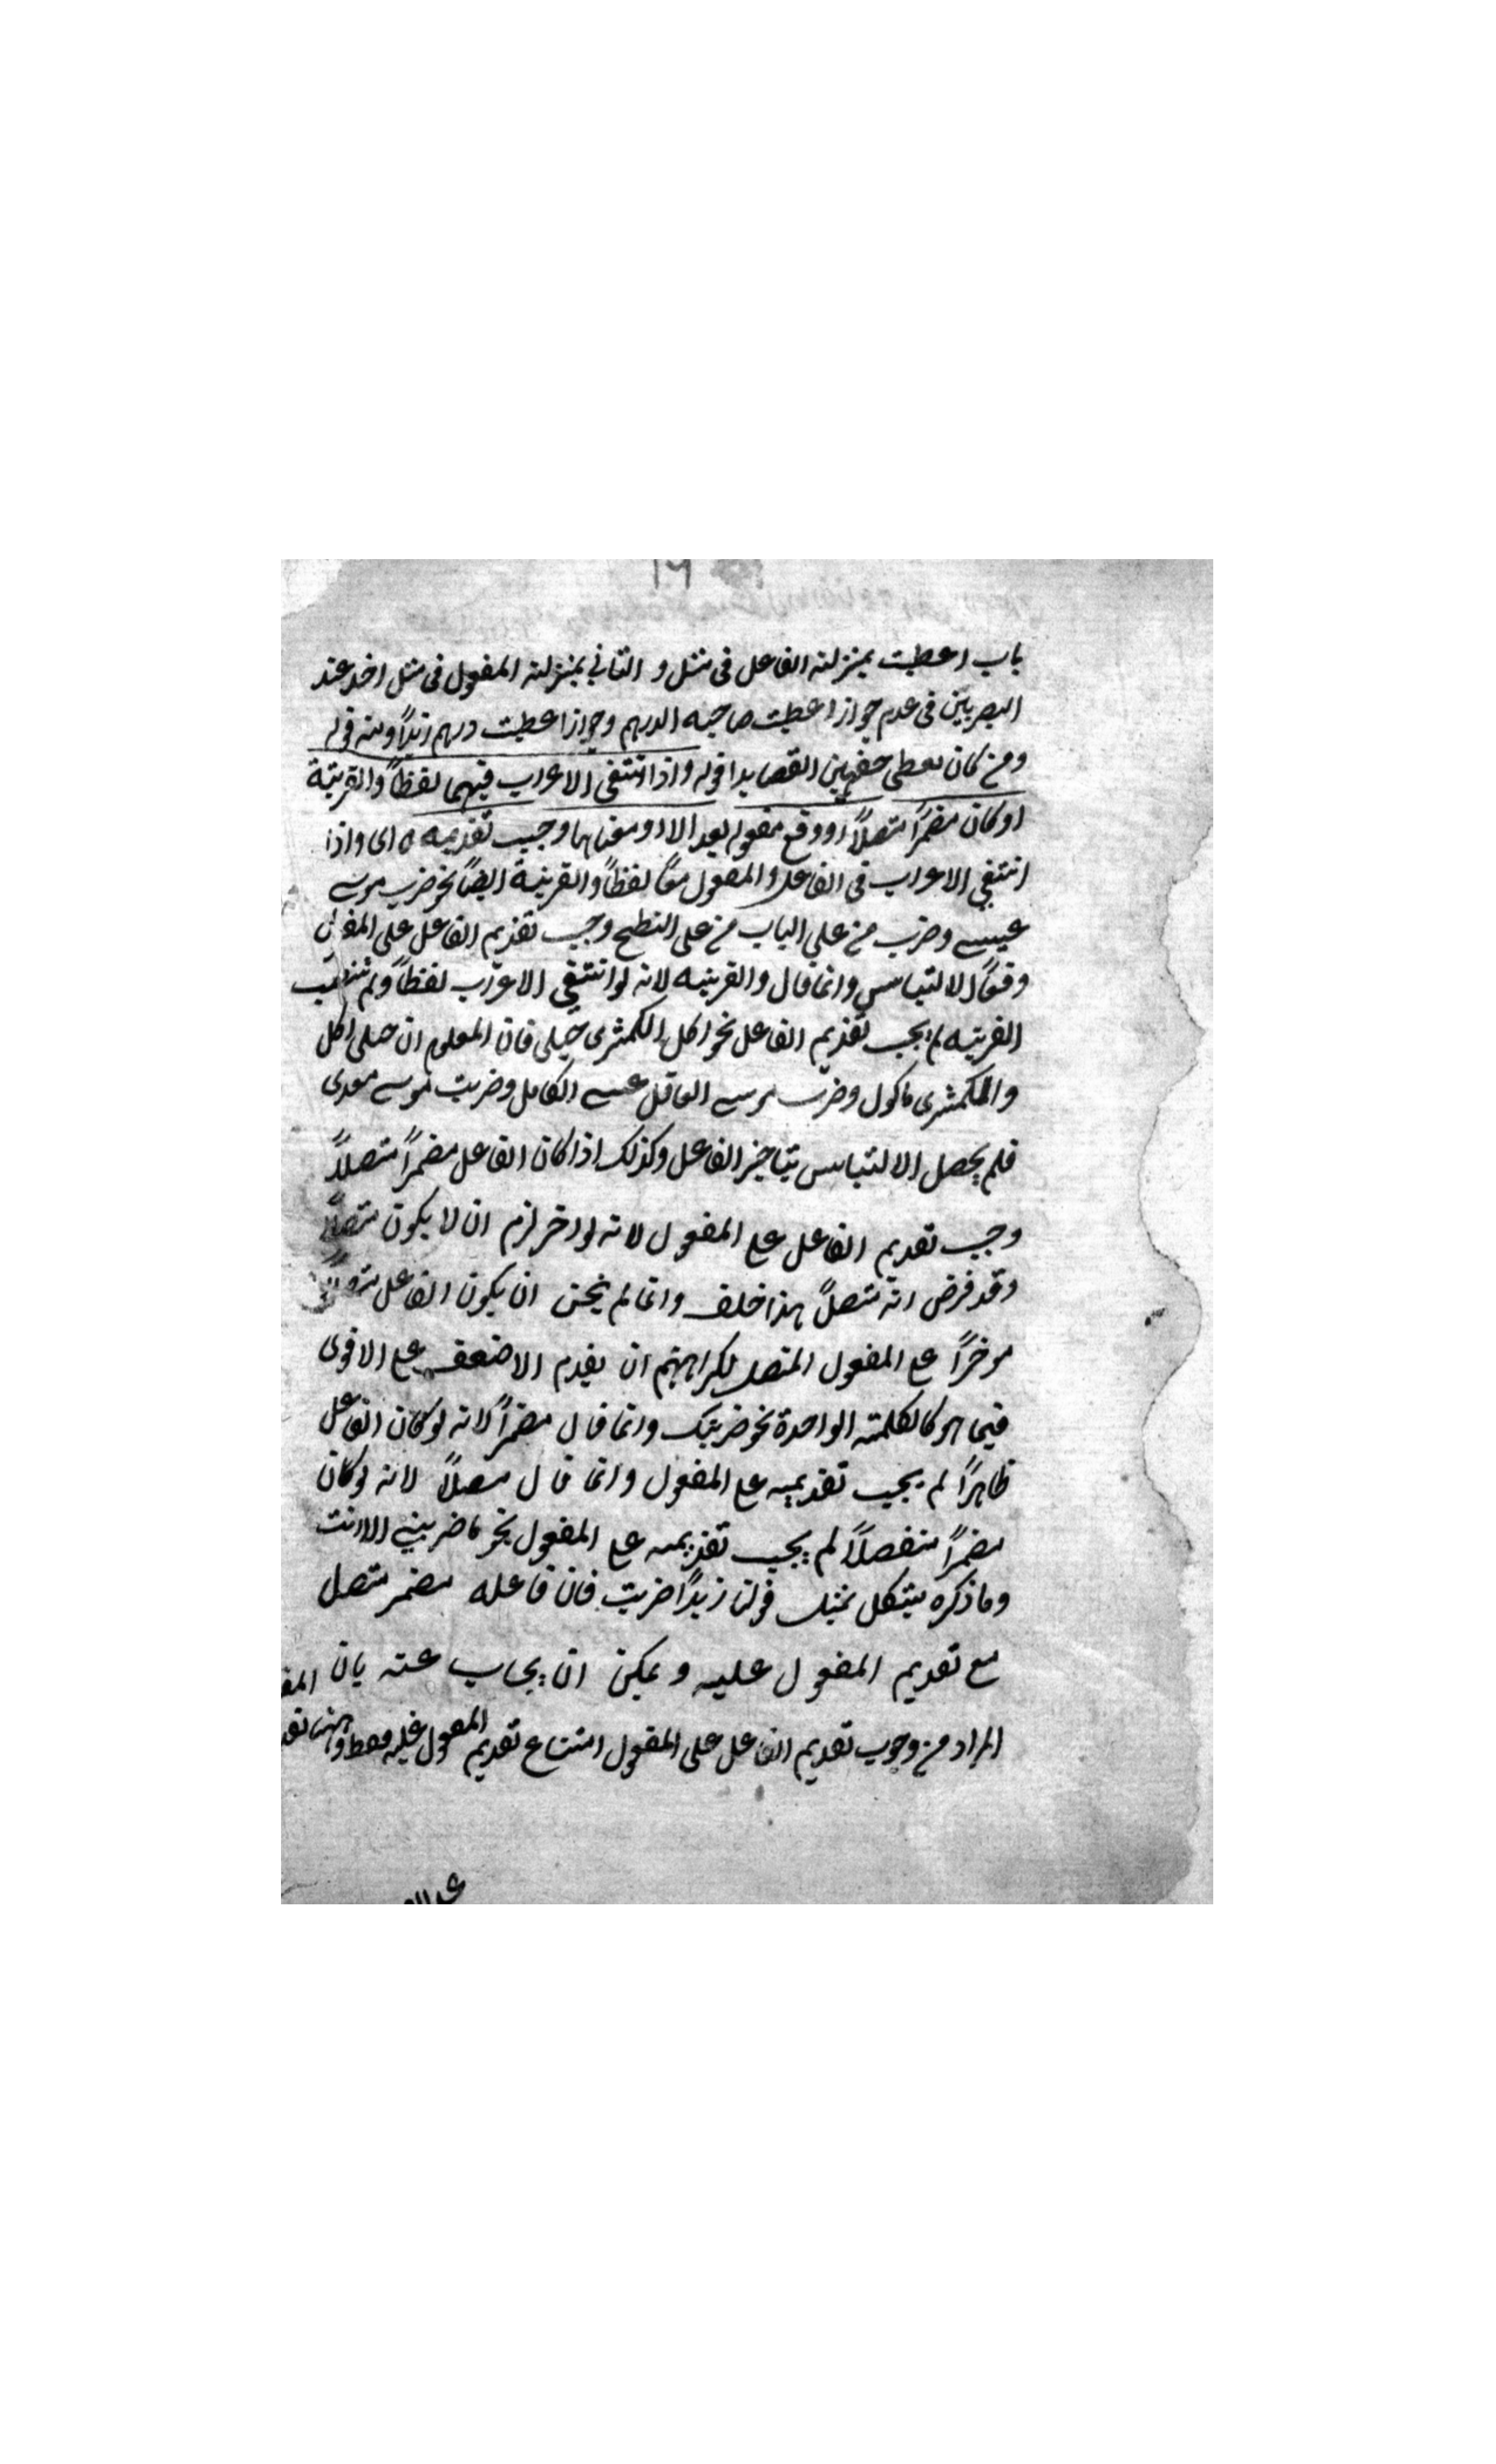 باب اعطيت بمنزلته الفاعل فى مثل و الثاني بمنزلته المفعول فى مثل اخذ عند
البصريين فى عدم جواز اعطيت صاحبه الدرهم وجواز اعطيت درهمه زيداً ومنه قوله
ومن كان يعطى حقهن القصايدا قوله واذا انتفى الاعراب فيهما لفظاً والقرينة
او كان مضمراً متصلاً او وقع مفعوله بعد الا او معناها وجب تقديمه ه اى واذا
انتفى الاعراب فى الفاعل والمفعول معاً لفظاً والقرينة ايضاً نحو ضرب موسى
عيسى وضرب من على الباب من على السطح وجب تقديم الفاعل على المفعول
وفعاً للالتباس وانما قال والقرينه لانه لو انتفى الاعراب لفظاً ولم تنتف
القرينه لم يجب تقديم الفاعل نحو اكل الكمثرى حبلى فان المعلوم ان حبلى اكل
والكمثرى ماكول وضرب موسى العاقل عيسى الكامل وضربت موسى سعدى
فلم يحصل الالتباس بتاخير الفاعل وكذلك اذا كان الفاعل مضمراً متصلاً
وجب تقديم الفاعل على المفعول لانه لو اخر لزم ان لا يكون متصلاً
وقد فرض انه متصلاً هذا خلف وانما لم يحسن ان يكون الفاعل
موخراً على المفعول المتصل لكراهتهم ان يقدم الاضعف على الاقوى
فيما هو كالكلمته الواحدة نحو ضربتك وانما قال مضمراً لانه لو كان الفاعل
ظاهراً لم يجب تقديمه على المفعول وانما قال متصلاً لانه لو كان
مضمراً منفصلاً لم يجب تقديمه على المفعول نحو ما ضربني الا انت
وما ذكره يشكل بمثل قولنا زيداً ضربت فان فاعله مضمر متصل
مع تقديم المفعول عليه ويمكن ان يجاب عنه بان
المراد من وجوب تقديم الفاعل على المفعول امتناع تقديم المفعول عليه فقط